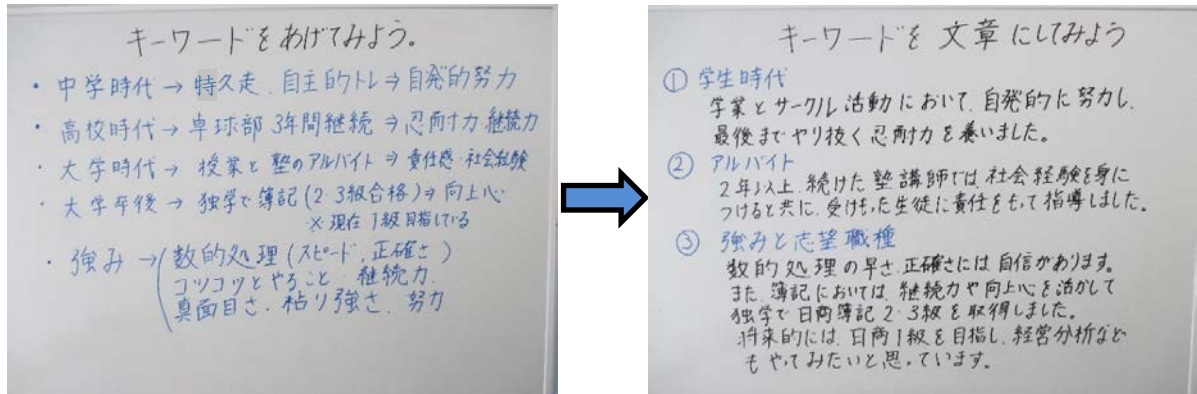 キーワードをあげてみよう。
・中学時代→特久走、自主的トレ⇒自発的努力
・高校時代→卓球部 3年間継続⇒忍耐力 継続力
・大学時代→授業と塾のアルバイト⇒責任感・社会経験
・大学卒後→独学で簿記(2・3級合格)⇒向上心
※現在1級目指している
・強み→(数的処理(スピード、正確さ)
コツコツとやること、継続力
真面目さ、粘り強さ、努力
キーワードを文章にしてみよう
① 学生時代
学業とサークル活動において、自発的に努力し、
最後までやり抜く忍耐力を養いました。
② アルバイト
2年以上、続けた塾講師では、社会経験を身に
つけると共に、受けもった生徒に責任をもって指導しました。
③ 強みと志望職種
数的処理の早さ、正確さには自信があります。
また、簿記においては、継続力や向上心を活かして
独学で日商簿記2・3級を取得しました。
将来的には、日商1級を目指し、経営分析など
もやってみたいと思っています。